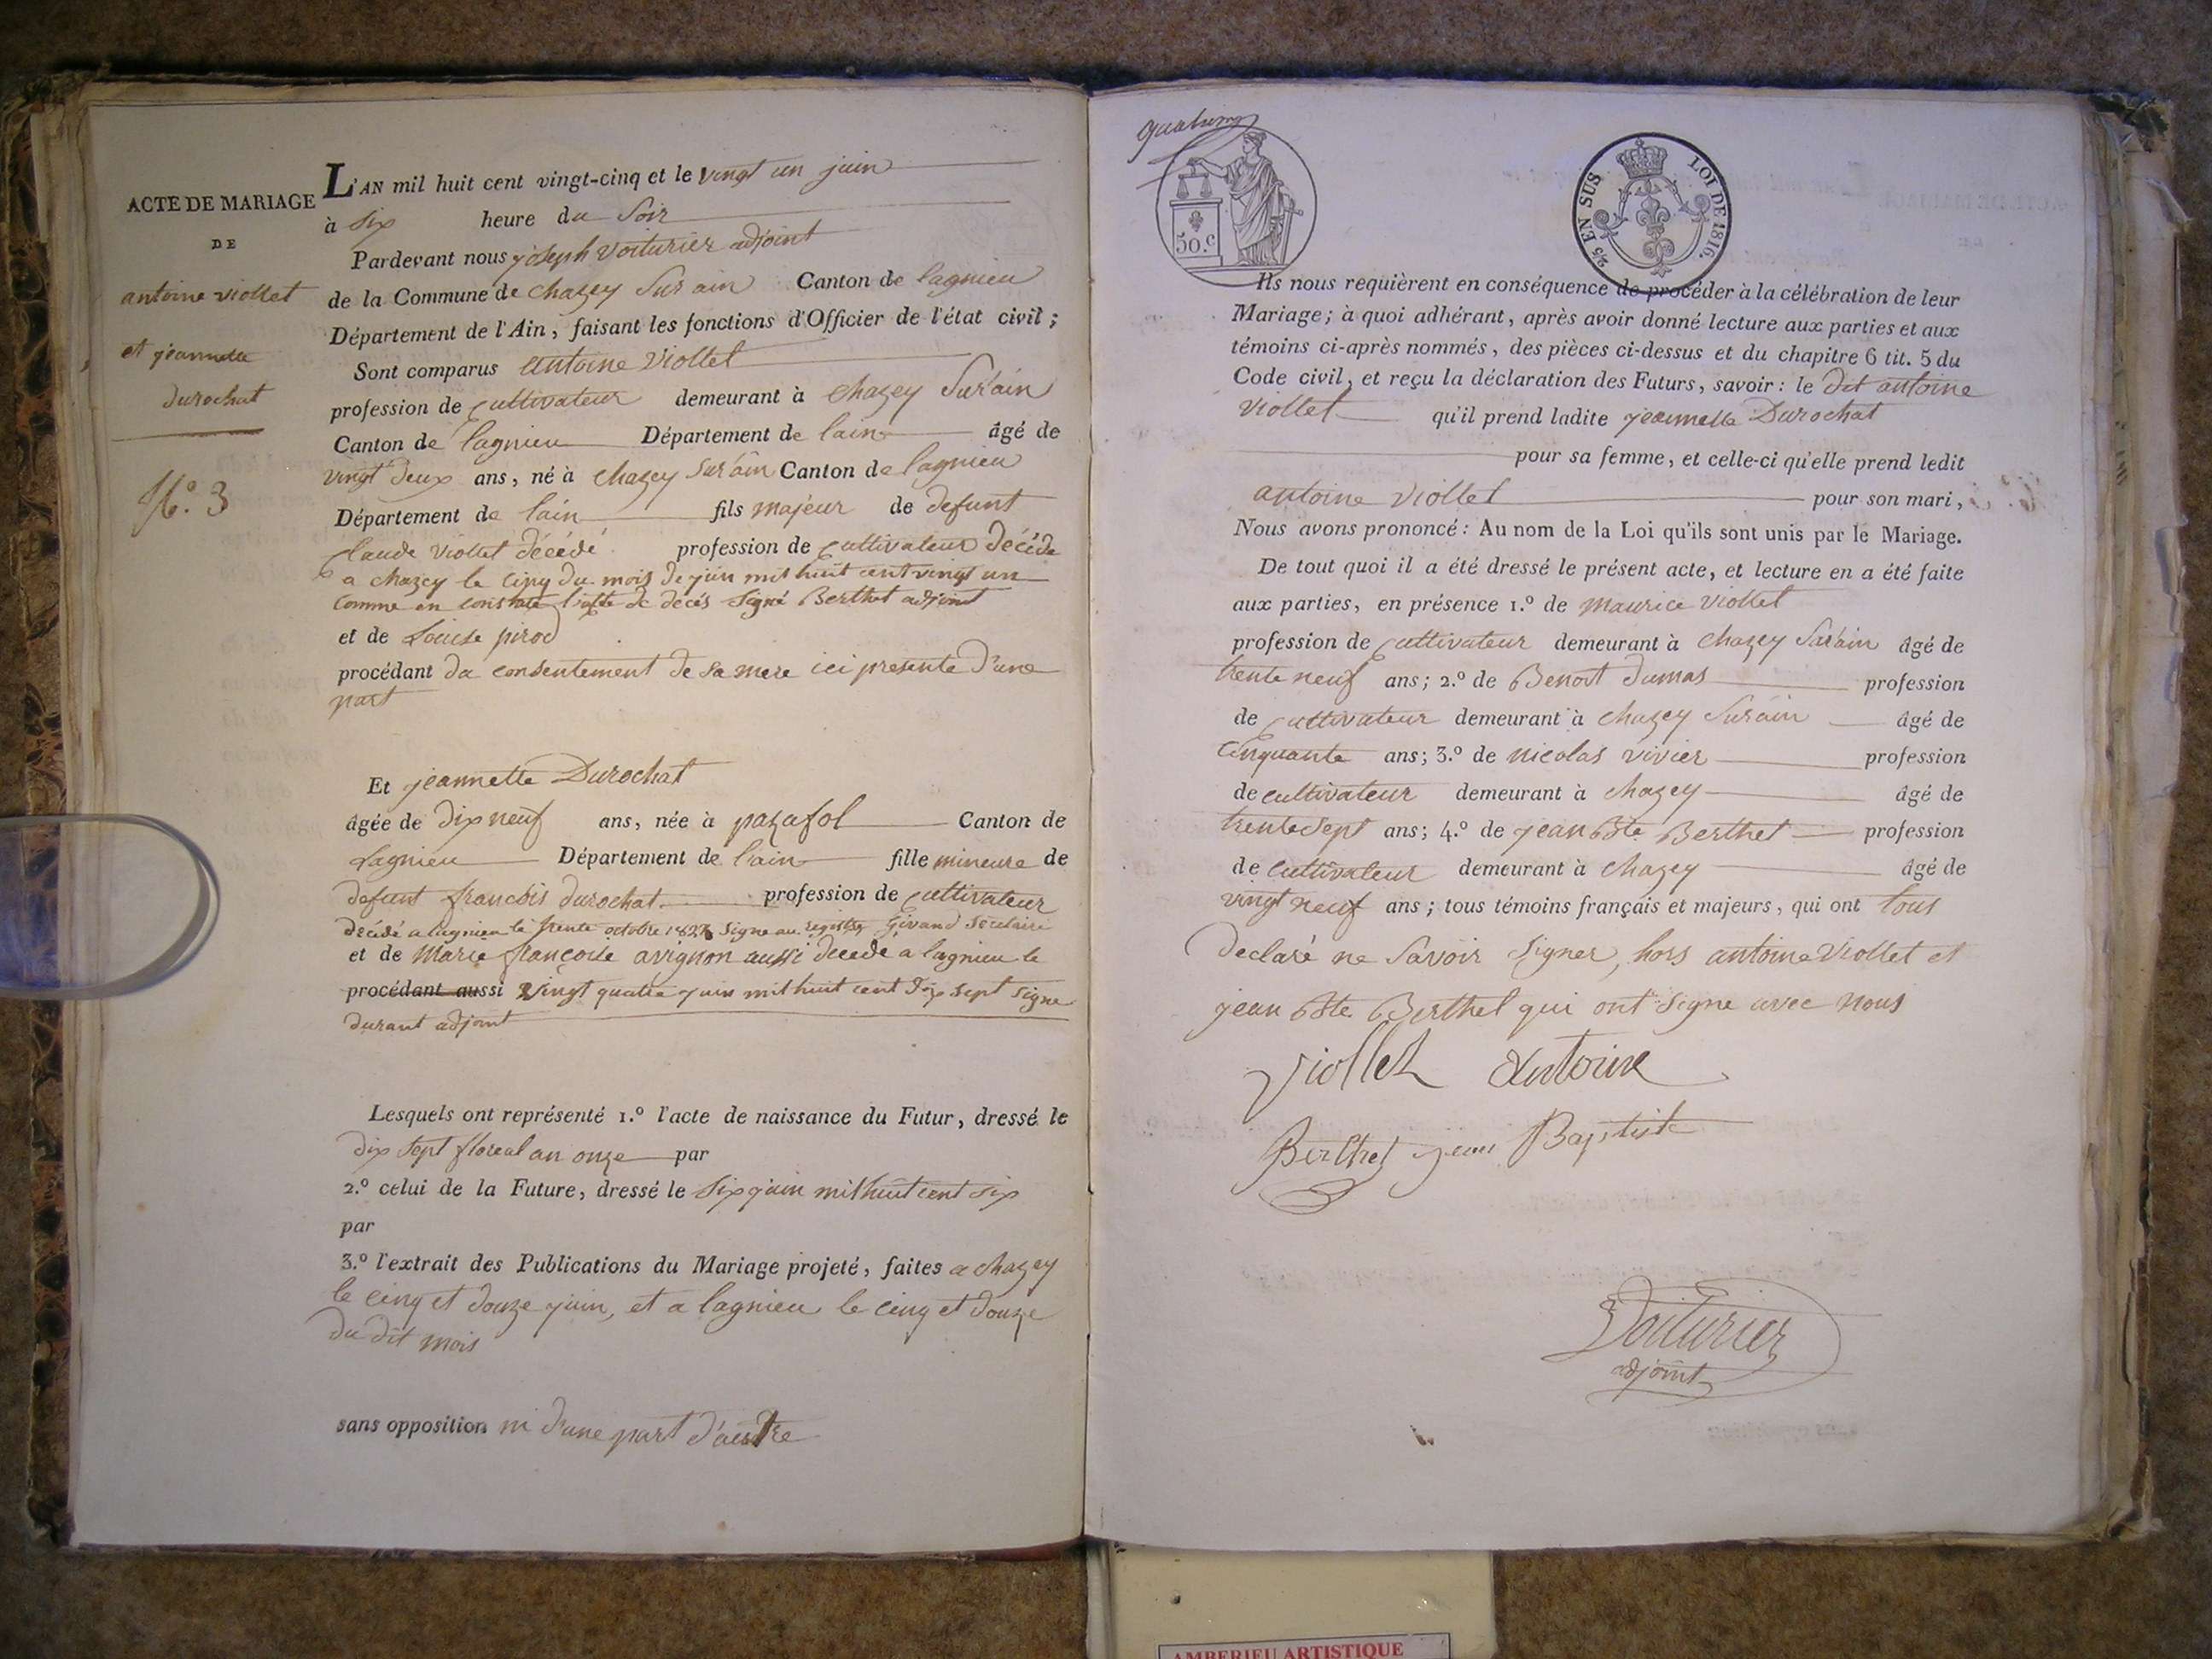 ACTE DE MARIAGE
DE
antoine viollet
et jeannette
durochat
N.º 3
L'AN mil huit cent vingt-cinq et le vingt un juin
à six heure du Soir
Pardevant nous joseph Voiturier adjoint
de la Commune de chazey Sur ain Canton de lagnieu
Département de l'Ain, faisant les fonctions d'Officier de l'état civil ;
Sont comparus antoine Viollet
profession de cultivateur demeurant à chazey Sur ain
Canton de lagnieu Département de lain âgé de
vingt deux ans, né à chazey Sur ain Canton de lagnieu
Département de lain fils majeur de defunt
claude viollet décédé profession de cultivateur décédé
a chazey le cinq du mois de juin mil huit cent vingt un
comme en constate l'acte de décés Signé Berthet adjoint
et de Louise pirod
procédant du consentement de sa mere ici presente d'une
part
Et jeannette Durochat
âgée de dix neuf ans, née à pazafol Canton de
Lagnieu Département de l'ain fille mineure de
defunt francois durochat profession de cultivateur
décédé a lagnieu le trente octobre signe au registre secretaire
et de Marie françoise avignon aussi decede a lagnieu le
procédant aussi vingt quatre juin mil huit cent dix sept signe
durant adjoint
Lesquels ont représenté 1.º l'acte de naissance du Futur, dressé le
dix sept floreal an onze par
2.º celui de la Future, dressé le six juin mil huit cent six
par
3.º l'extrait des Publications du Mariage projeté, faites a chazey
le cinq et douze juin, et a lagnieu le cinq et douze
du dit mois
sans opposition ni d'une part d'autre
50.c
2/5 EN SUS LOI DE 1816.
Ils nous requièrent en conséquence de procéder à la célébration de leur
Mariage ; à quoi adhérant, après avoir donné lecture aux parties et aux
témoins ci-après nommés, des pièces ci-dessus et du chapitre 6 tit. 5 du
Code civil, et reçu la déclaration des Futurs, savoir : le dit antoine
viollet qu'il prend ladite jeannette Durochat
pour sa femme, et celle-ci qu'elle prend ledit
antoine viollet pour son mari,
Nous avons prononcé : Au nom de la Loi qu'ils sont unis par le Mariage.
De tout quoi il a été dressé le présent acte, et lecture en a été faite
aux parties, en présence 1.º de maurice viollet
profession de cultivateur demeurant à chazey Sur ain âgé de
trente neuf ans ; 2.º de Benoit dumas profession
de cultivateur demeurant à chazey Sur ain âgé de
cinquante ans ; 3.º de nicolas vivier profession
de cultivateur demeurant à chazey âgé de
trente sept ans ; 4.º de jean Bte Berthet profession
de cultivateur demeurant à chazey âgé de
vingt neuf ans ; tous témoins français et majeurs, qui ont tous
declaré ne Savoir Signer, hors antoine Viollet et
jean Bte Berthet qui ont signe avec nous
viollet Antoine
Berthet jean Baptiste
Voiturier
adjoint
AMBERIEU ARTISTIQUE